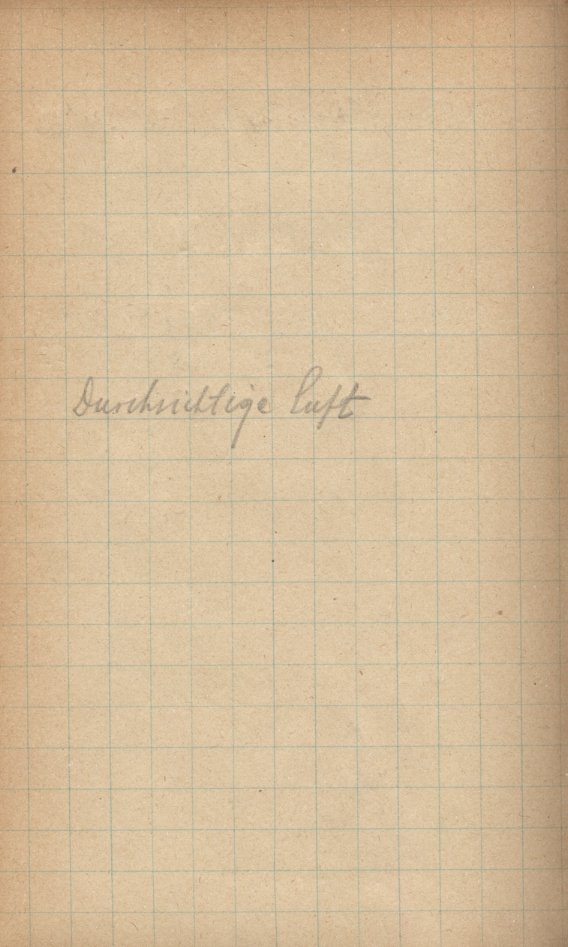 Durchsichtige Luft